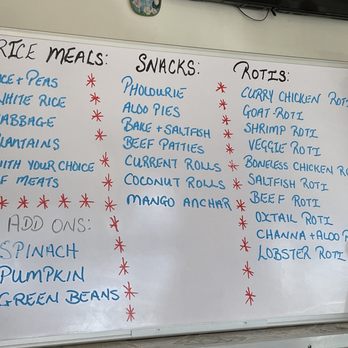 RICE MEALS:
RICE + PEAS
WHITE RICE
CABBAGE
PLANTAINS
WITH YOUR CHOICE
OF MEATS
ADD ONS:
SPINACH
PUMPKIN
GREEN BEANS
SNACKS:
PHOLOURIE
ALOO PIES
BAKE + SALTFISH
BEEF PATTIES
CURRENT ROLLS
COCONUT ROLLS
MANGO ANCHAR
ROTIS:
CURRY CHICKEN ROTI
GOAT ROTI
SHRIMP ROTI
VEGGIE ROTI
BONELESS CHICKEN RO
SALTFISH ROTI
BEEF ROTI
OXTAIL ROTI
CHANNA + ALOO R
LOBSTER ROTI